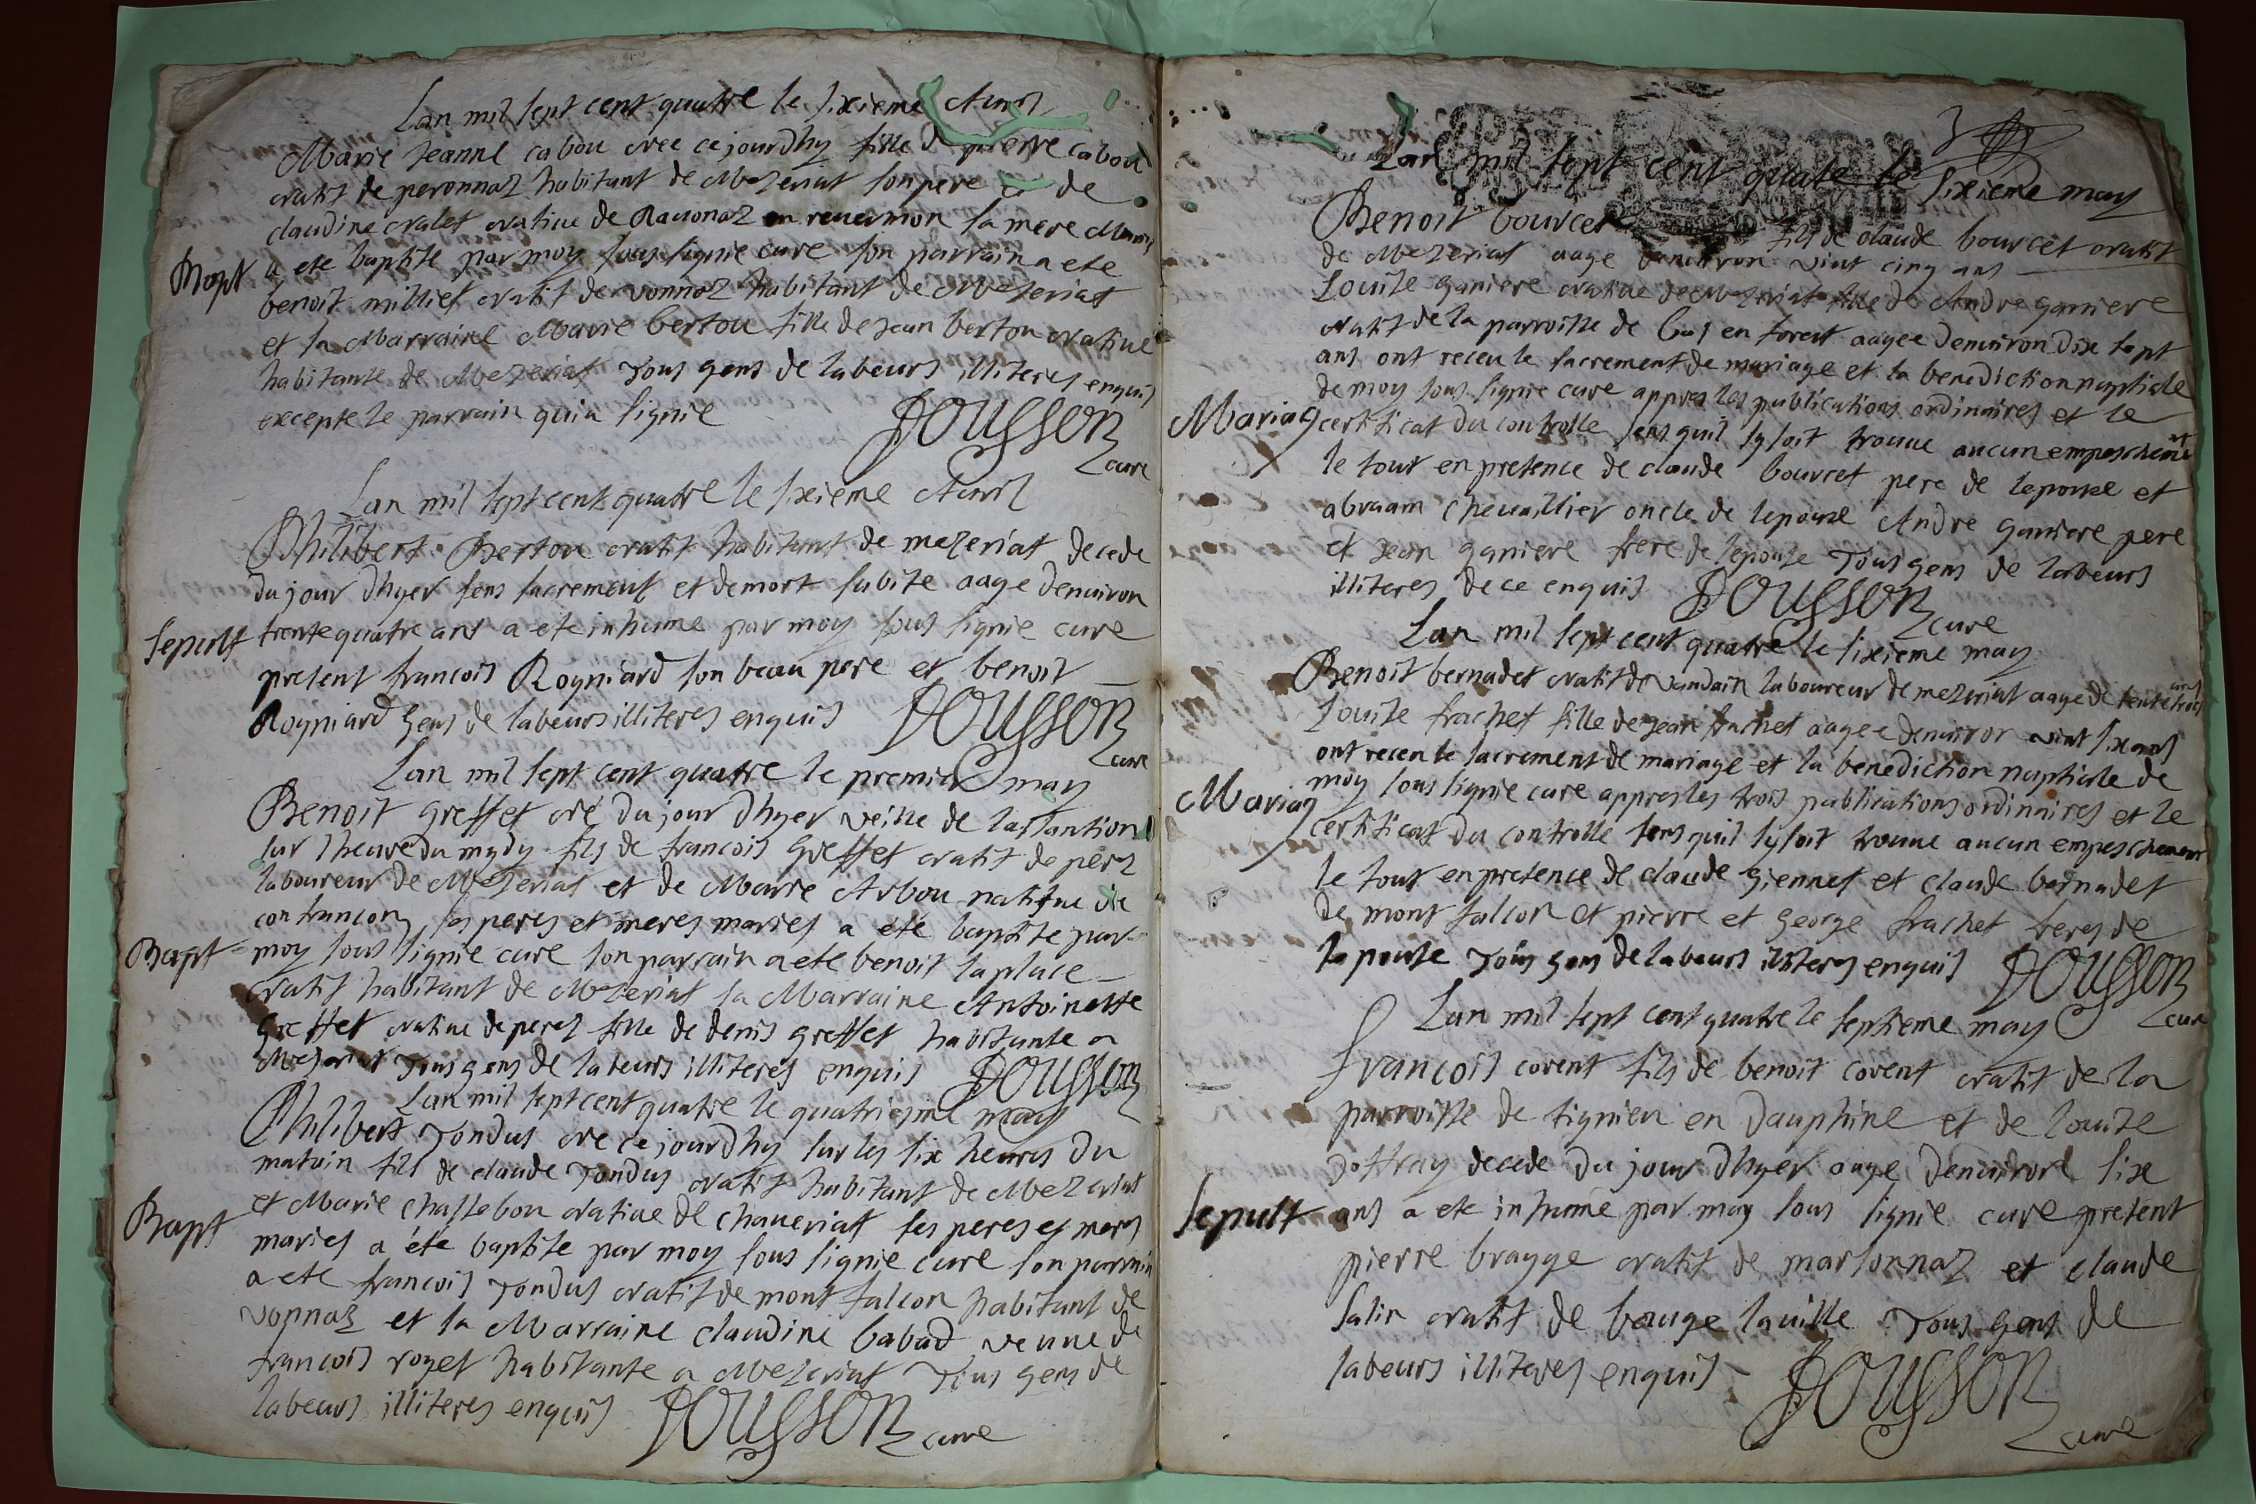 Lan mil sept cent quatre le sixieme Auril
Marie Jeanne cabou cree cejourdhy fille de pierre cabou
oratif de peronnaz habitant de Mezeriat son pere et de
claudine oralet oratiue de Rauonaz en reuermon sa mere Maries
Bapt a ete baptise par moy sous signie cure son parrain a ete
benoit milliet oratif de vonnaz habitant de Mezeriat
et la Marraine Marie bertou fille de Jean berton oratiue
habitante de Mezeriat Tous gens de labeurs illiteres enquis
excepte le parrain qui a signie
POUSSON cure
Lan mil sept cent quatre le sixieme Auril
Philibert Berton oratif habitant de mezeriat decede
du jour dhyer sens sacrement et de mort subite aage denuiron
Sepult trente quatre ans a ete inhume par moy sous signie cure
present francois Rogniard son beau pere et benoit
Rogniard gens de labeurs illiteres enquis POUSSON cure
Lan mil sept cent quatre le premier may
Benoit greffet cre du jour dhyer veille de lassantion
sur lheure du mydy fils de francois Greffet oratif de perez
laboureur de Mezeriat et de Marie Arbou natifue de
confrancon ses peres et meres maries a ete baptise par
Bapt moy sous signie cure son parrain a ete benoit laplace
oratif habitant de Mezeriat la Marraine Antoinette
Greffet oratiue de perez fille de denis greffet habitante a
Mezeriat Tous gens de labeurs illiteres enquis POUSSON
Lan mil sept cent quatre le quatriesme may
Philibert Tondus cre cejourdhy sur les six heures du
matin fils de claude Tondus oratif habitant de Mezeriat
et Marie chassebou oratiue de chaueriat ses peres et meres
Bapt maries a ete baptise par moy sous signie cure son parrain
a ete francois Tondus oratif de mont falcon habitant de
vonnaz et la Marraine claudine babad veuue de
francois royet habitante a Mezeriat Tous gens de
labeurs illiteres enquis POUSSON cure
Lan mil sept cent quate le sixieme may
Benoit bourcet fils de claude bourcet oratif
de Mezeriat aage denuiron vint cinq ans
Louise ganiere oratiue de Mezeriat fille de Andre ganiere
oratif de la parroisse de en forest aagee denuiron dix sept
ans ont receu le sacrement de mariage et la benediction nuptiale
de moy sous signie cure appres les publications ordinaires et le
Mariag certificat du controlle sens quil sy soit trouue aucun empeschemt
le tout en presence de claude bourcet pere de lepouse et
abraam cheuaillier oncle de lepouse Andre ganiere pere
et Jean ganiere frere de lepouse Tous gens de labeurs
illiteres de ce enquis POUSSON cure
Lan mil sept cent quatre le sixieme may
Benoit bernadet oratif de vandain laboureur de mezeriat aage de trente trois ans
Louise frachet fille de Jean frachet aagee denuiron vint six ans
ont receu le sacrement de mariage et la benediction nuptiale de
Mariag moy sous signie cure appres les trois publications ordinaires et le
certificat du controlle sens quil sy soit trouue aucun empeschement
le tout en presence de claude Giennet et claude bernadet
de mont falcon et pierre et George frachet freres de
lepouse Tous gens de labeurs illiteres enquis POUSSON cure
Lan mil sept cent quatre le septieme may
francois corent fils de benoit corent oratif de la
parroisse de tignieu en dauphine et de louise
Joffray decede du jour dhyer aage denuiron six
Sepult ans a ete inhume par moy sous signie cure present
pierre bragge oratif de marsonnaz et claude
Salin oratif de bauge lauille Tous gens de
labeurs illiteres enquis POUSSON
cure